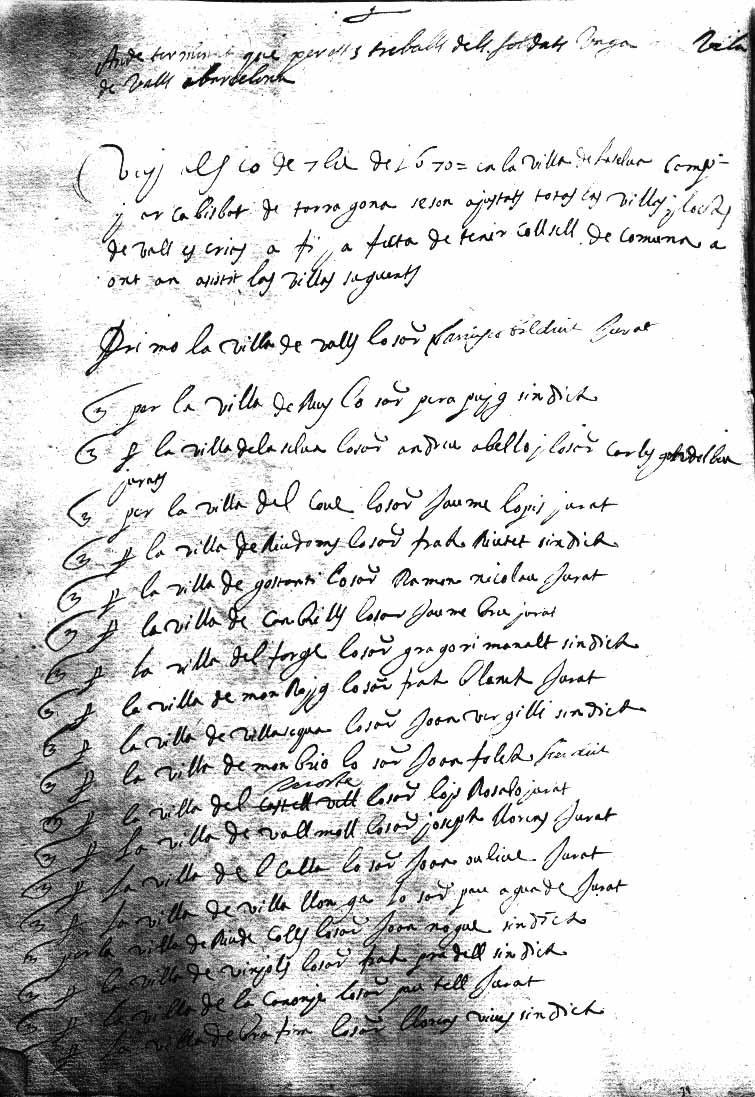 An de terminat que per els treballs dels soldats vinga Vila
de Valls a barselona
Vuy als 10 de de 1670 = en la villa de la selva Camp
y arcabisbat de tarragona se son ajustats totas las villas y lochs
de vall escrits a fi y a fecta de tenir Consell de Comuna a
ont an asistit las villas seguents
Primo la villa de valls lo sor Jurat
per la villa de Reus lo sor pera puyg sindich
p la villa de la selva lo sor andreu abello y lo sor Carlas
jurats
per la villa del Coue lo sor Jaume lopis jurat
p la villa de Riudoms lo sor frah Riutet sindich
p la villa de gostanti lo sor Ramon nicolau Jurat
p la villa de Canbrills lo sor Jaume bru jurat
p la villa del forge lo sor gragori manalt sindich
p la villa de mon Rojg lo sor frah planch Jurat
p la villa de villasequa lo sor Joan vergilli sindich
p la villa de monbrio lo sor Joan folch sindich
p la villa del Castellvell lo sor lojs Rosello jurat
p la villa de vallmoll lo sor joseph llorens Jurat
p la villa de l Calla lo sor Joan oulive Jurat
p la villa de villallonga lo sor pau aguade Jurat
per la villa de Riude Colls lo sor Joan nogue sindich
p la villa de vinyols lo sor frah pradell sindich
p la villa de la Canonja lo sor pau tell Jurat
p la villa de brafim lo sor llorens vives sindich